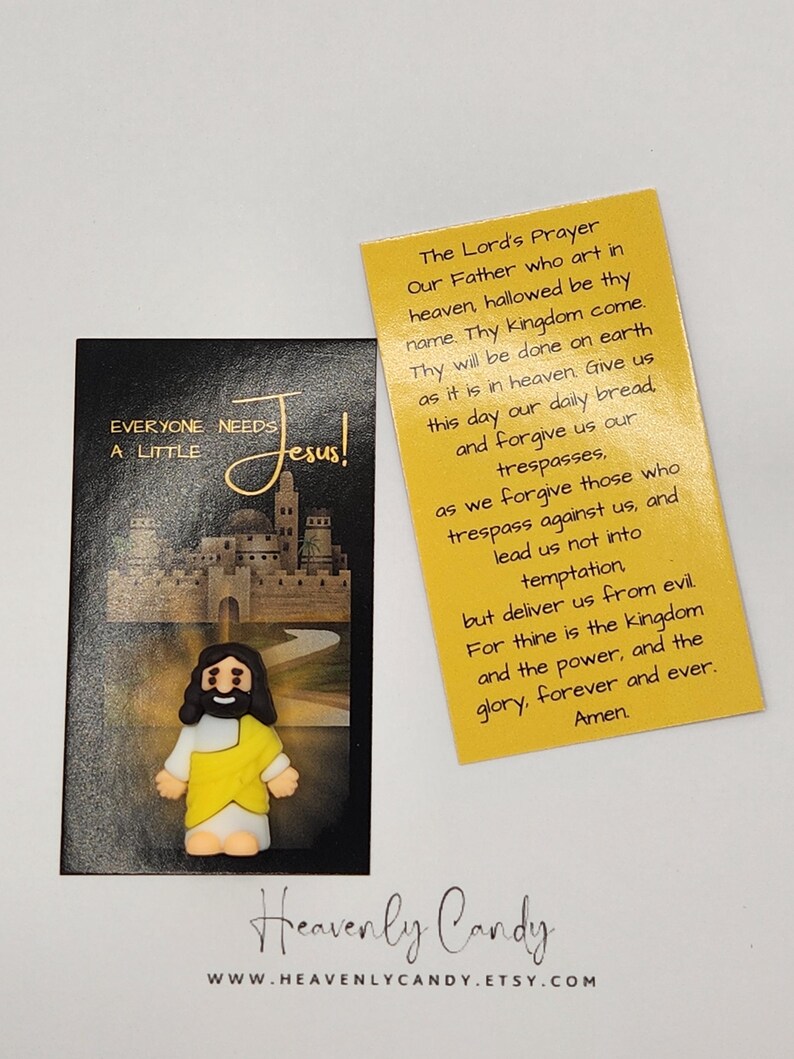 EVERYONE NEEDS
A LITTLE Jesus!
The Lord's Prayer
Our Father who art in
heaven, hallowed be thy
name. Thy kingdom come.
Thy will be done on earth
as it is in heaven. Give us
this day our daily bread,
and forgive us our
trespasses,
as we forgive those who
trespass against us, and
lead us not into
temptation,
but deliver us from evil.
For thine is the kingdom
and the power, and the
glory, forever and ever.
Amen.
Heavenly Candy
WWW.HEAVENLYCANDY.ETSY.COM